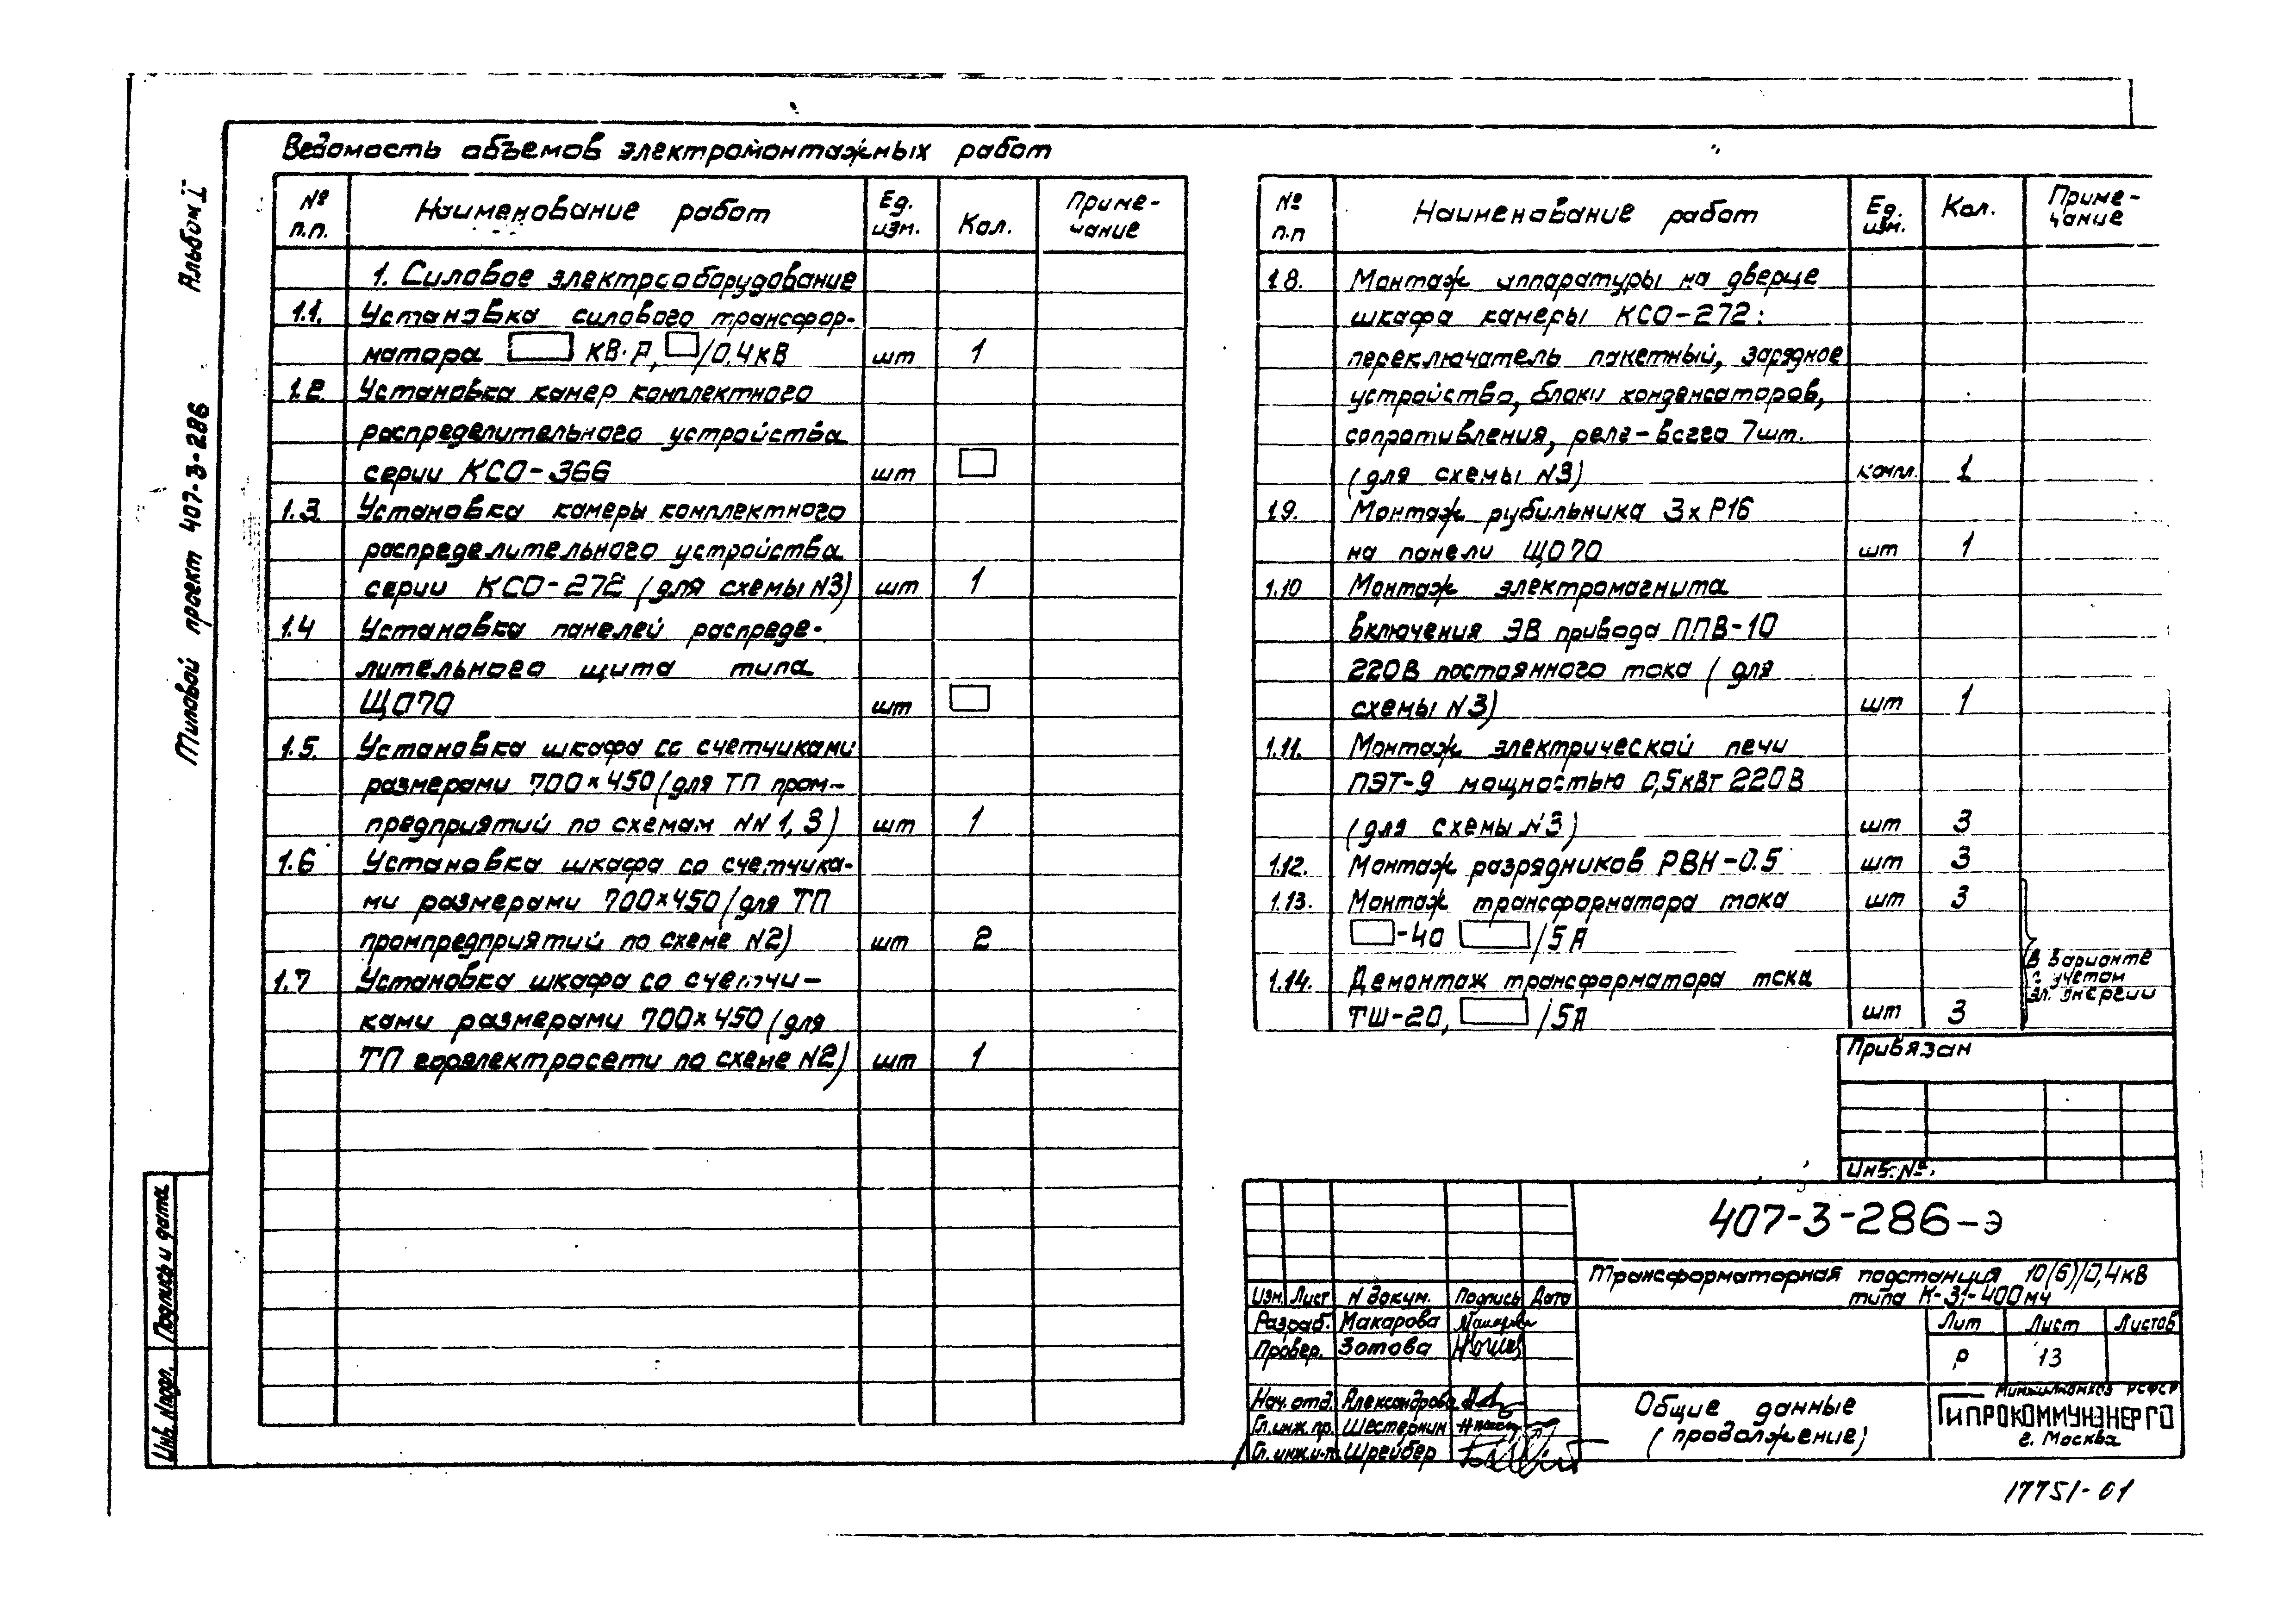 Альбом I
Типовой проект 407-3-286
Ведомость объемов электромонтажных работ
№ п.п. Наименование работ Ед. изм. Кол. Приме-чание
1. Силовое электрооборудование
1.1. Установка силового трансфор-
матора КВ·А, /0,4кВ шт 1
1.2. Установка камер комплектного
распределительного устройства
серии КСО-366 шт
1.3. Установка камеры комплектного
распределительного устройства
серии КСО-272 (для схемы N3) шт 1
1.4 Установка панелей распреде-
лительного щита типа
ЩО70 шт
1.5. Установка шкафа со счетчиками
размерами 700×450 (для ТП пром-
предприятий по схемам NN 1, 3) шт 1
1.6 Установка шкафа со счетчика-
ми размерами 700×450 (для ТП
промпредприятий по схеме N2) шт 2
1.7 Установка шкафа со счетчи-
ками размерами 700×450 (для
ТП горэлектросети по схеме N2) шт 1
№ п.п Наименование работ Ед. изм. Кол. Приме-чание
1.8. Монтаж аппаратуры на дверце
шкафа камеры КСО-272:
переключатель пакетный, зарядное
устройство, блоки конденсаторов,
сопротивления, реле-всего 7шт.
(для схемы N3) компл. 1
1.9. Монтаж рубильника 3×Р16
на панели ЩО70 шт 1
1.10 Монтаж электромагнита
включения ЭВ привода ППВ-10
220В постоянного тока (для
схемы N3) шт 1
1.11. Монтаж электрической печи
ПЭТ-9 мощностью 0,5квт 220В
(для схемы N3) шт 3
1.12. Монтаж разрядников РВН-0.5 шт 3
1.13. Монтаж трансформатора тока шт 3
-40 /5А
1.14. Демонтаж трансформатора тока
ТШ-20, /5А шт 3
В варианте
с учетом
эл. энергии
Привязан
Инв.№.
407-3-286-э
Трансформаторная подстанция 10(6)/0,4кВ
типа К-31-400м4
Изм. Лист N докум. Подпись Дата
Разраб. Макарова
Провер. Зотова
Нач. отд. Александрова
Гл. инж. пр. Шестернин
Гл. инж. и-та Шрейбер
Лит Лист Листов
Р 13
Общие данные
(продолжение)
Минжилкомхоз РСФСР
ГИПРОКОММУНЭНЕРГО
г. Москва
Подпись и дата
Инв. №подл.
17751-01